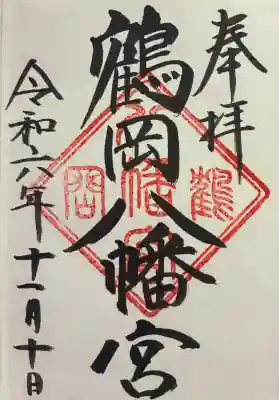 奉拝
鶴岡八幡宮
令和六年十一月十日